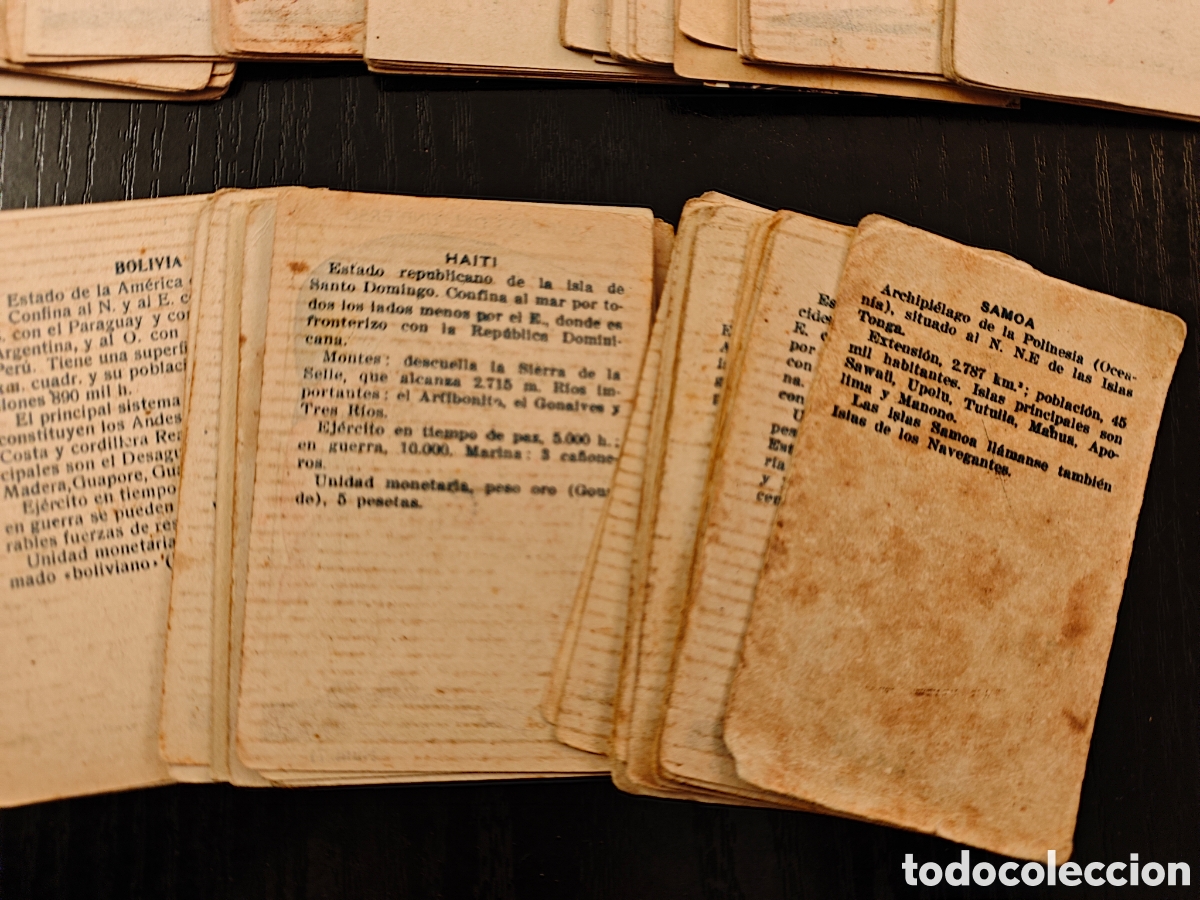 BOLIVIA
Estado de la América
Confina al N. y al E. c
con el Paraguay y con
Argentina, y al O. con
Perú. Tiene una superfi
km. cuadr. y su poblaci
llones 890 mil h.
El principal sistema
constituyen los Andes
Costa y cordillera Rea
cipales son el Desagu
Madera, Guapore, Gua
Ejército en tiempo
en guerra se pueden
rables fuerzas de res
Unidad monetaria
mado «boliviano»
HAITI
Estado republicano de la isla de
Santo Domingo. Confina al mar por to-
dos los lados menos por el E., donde es
fronterizo con la República Domini-
cana.
Montes: descuella la Sierra de la
Selle, que alcanza 2.715 m. Ríos im-
portantes: el Artibonito, el Gonaives y
Tres Ríos.
Ejército en tiempo de paz, 5.000 h.;
en guerra, 10.000. Marina: 3 cañone-
ros.
Unidad monetaria, peso oro (Gour
de), 5 pesetas.
Es
cides
E. d
por
con
na.
con
U
pes
Est
ría
y
cen
SAMOA
Archipiélago de la Polinesia (Ocea-
nía), situado al N. N.E de las Islas
Tonga.
Extensión, 2.787 km.²; población, 45
mil habitantes. Islas principales son
Sawaii, Upolu, Tutuila, Mahua, Apo-
lima y Manono.
Las islas Samoa llámanse también
Islas de los Navegantes.
todocoleccion